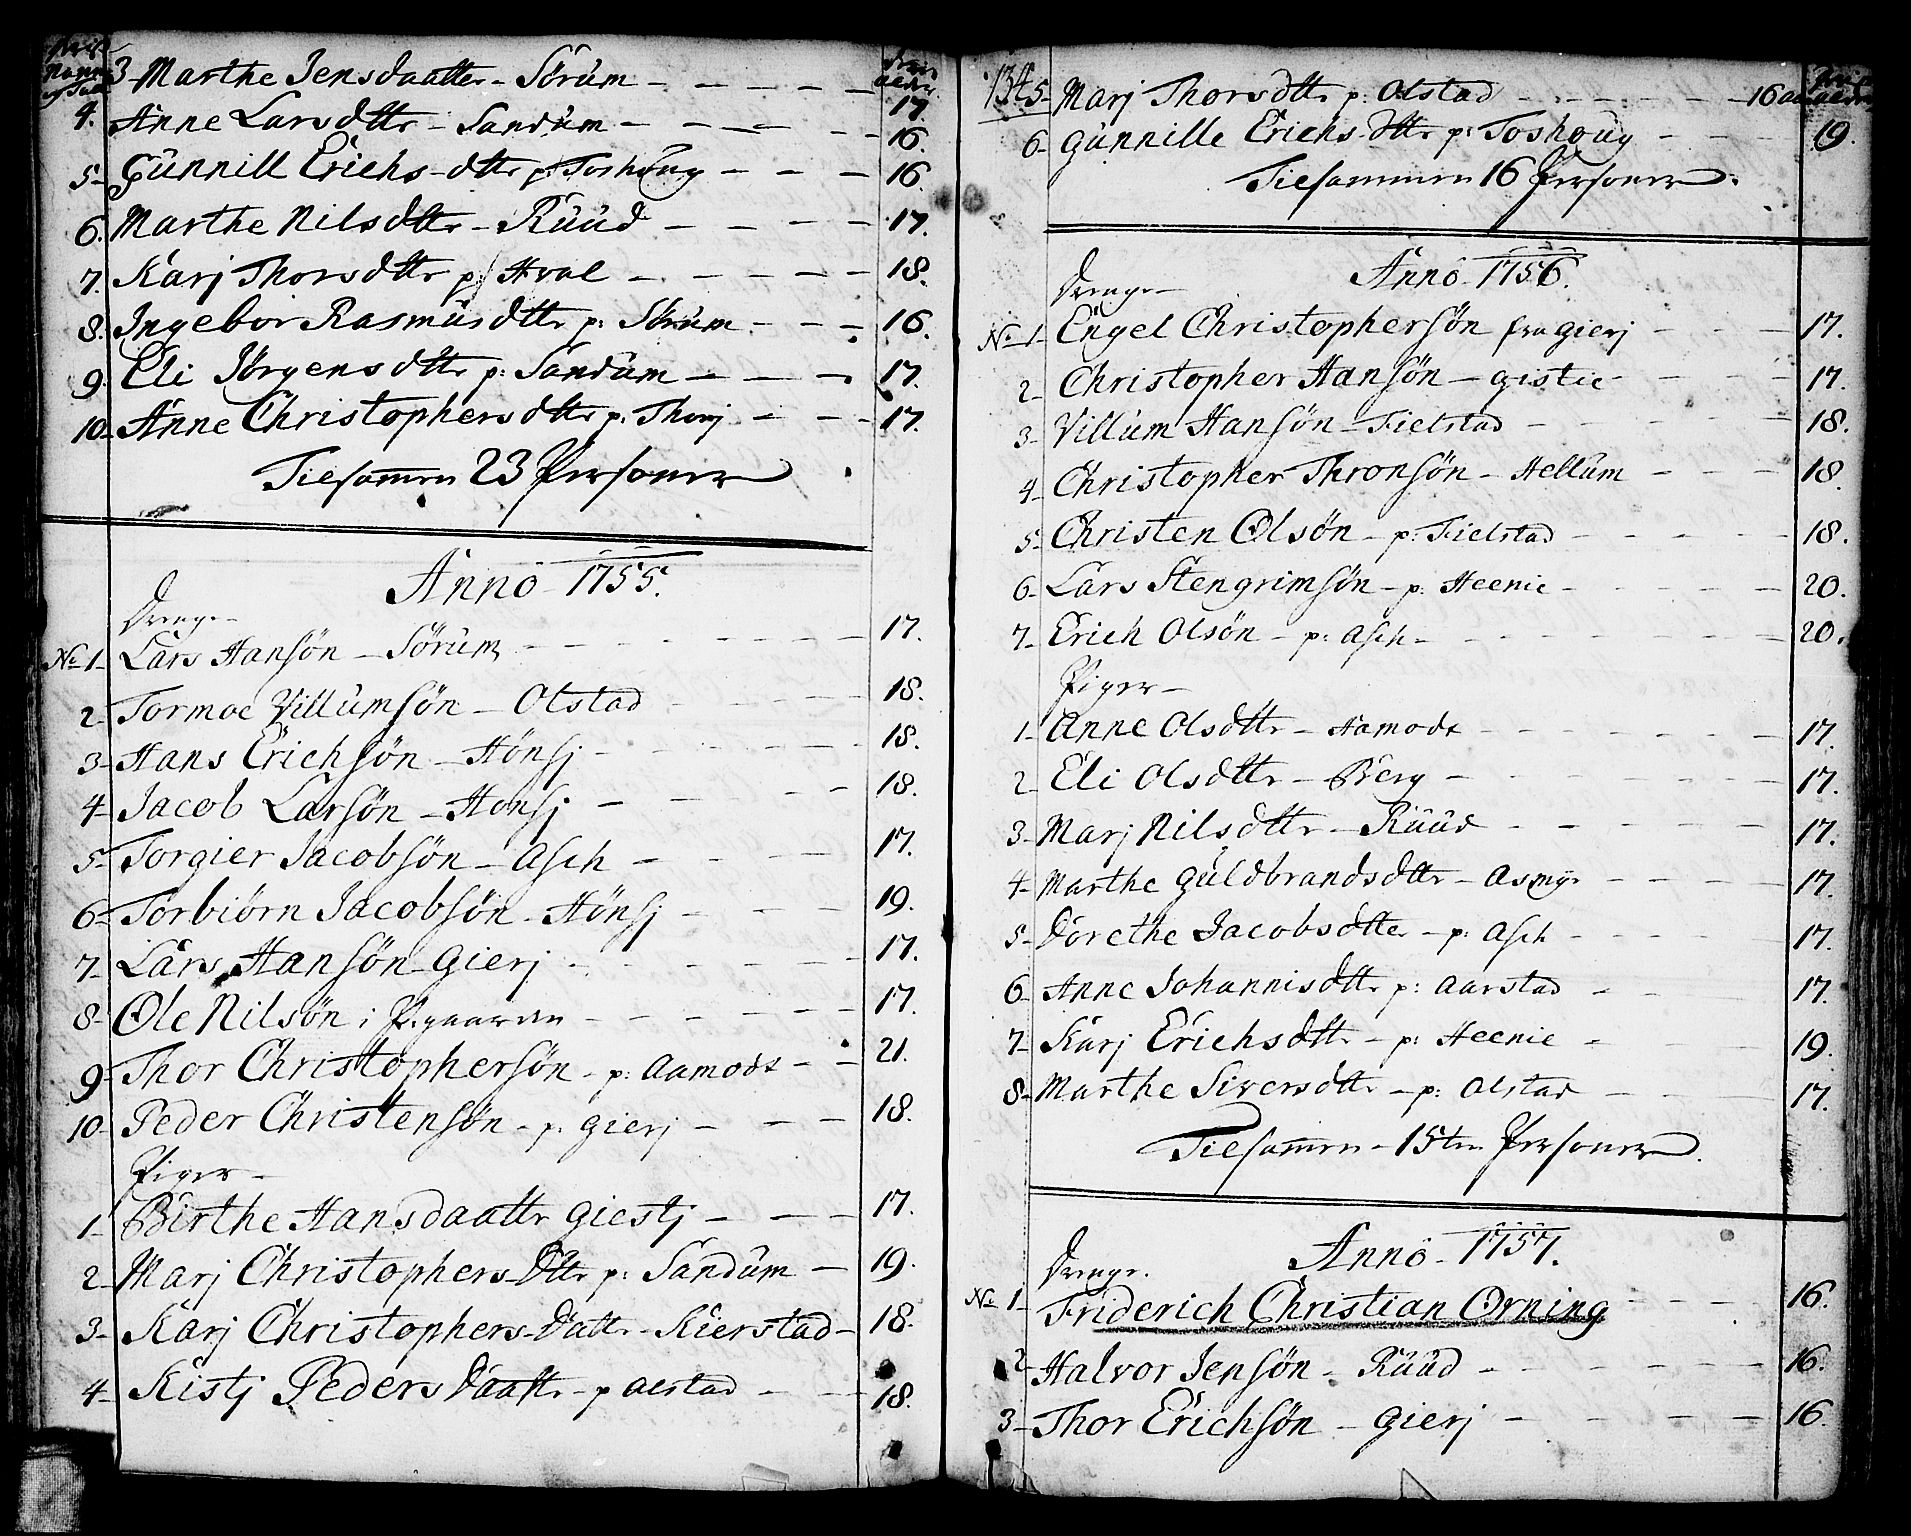 3 Marthe Jensdaatter - Sörüm
4. Anne Larsdttr - Sandüm - 17.
16.
5- Günnill Erichs-dttr p: Toshoug - 16.
6. Marthe Nilsdttr - Rüüd - 17.
7. Karj Thorsdttr p: Hval - 18.
8. Ingebor Rasmüsdttr p: Sörüm - 16.
9. Eli Jörgensdttr p: Sandüm - 17.
10. Anne Christophersdttr p: Thorj - 17.
Tilsammen 23 Personer
Anno 1755.
Drenge
No 1- Lars Hansön - Sörüm - 17.
2- Tormoe Villümsön - Olstad - 18.
3- Hans Erichsön - Hönsj - 18.
4- Jacob Larsön - Honsj - 18.
5- Torgier Jacobsön - Asch - 17.
6- Torbiörn Jacobsön - Hönsj - 19.
7- Lars Hansön - Gierj - 17.
8- Ole Nilsön i Pr.gaarden - 17.
9- Thor Christophersön - p: Aamodt - 21.
10- Peder Christensön - p: gierj - 18.
Piger -
1- Birthe Hansdaattr Giestj - 17.
2- Marj Christophers-Dttr p: Sandüm - 19.
3- Karj Christophers-Dattr - Kierstad - 18.
4- Kistj Peders Daattr - p Olstad - 18.
134
5- Marj Thorsdttr p: Olstad - 16
6- Günnille Erichs-dttr p: Toshoug - 19.
Tilsammen 16 Personer.
Anno 1756.
Drenge -
No 1- Engel Christophersön fra Gierj - 17.
2- Christopher Hansön - gistie - 17.
3- Villüm Hansön - Fielstad - 18.
4- Christopher Thronsön - Hellüm - 18.
5- Christen Olsön - p: Fielstad - 18.
6- Lars Stengrimsön - p: Heenie - 20.
7- Erich Olsön - p: Asch - 20.
Piger -
1- Anne Olsdttr - Hamodt - 17.
2- Eli Olsdttr - Berg - 17.
3- Marj Nilsdttr - Rüüd - 17.
4- Marthe Güldbrandsdttr - Asmyr - 17.
5- Dorethe Jacobsdtter - p: Asch - 17.
6- Anne Johannisdttr p: Aarstad - 17.
7- Karj Erichsdttr - p: Heenie - 19.
8- Marthe Siversdttr - p: Olstad - 17.
Tilsammen - 15ten Personer.
Anno 1757.
Drenge.
No 1- Friderich Christian Orning - 16.
2- Halvor Jensön - Rüüd - 16.
3- Thor Erichsön - Gierj - 16.